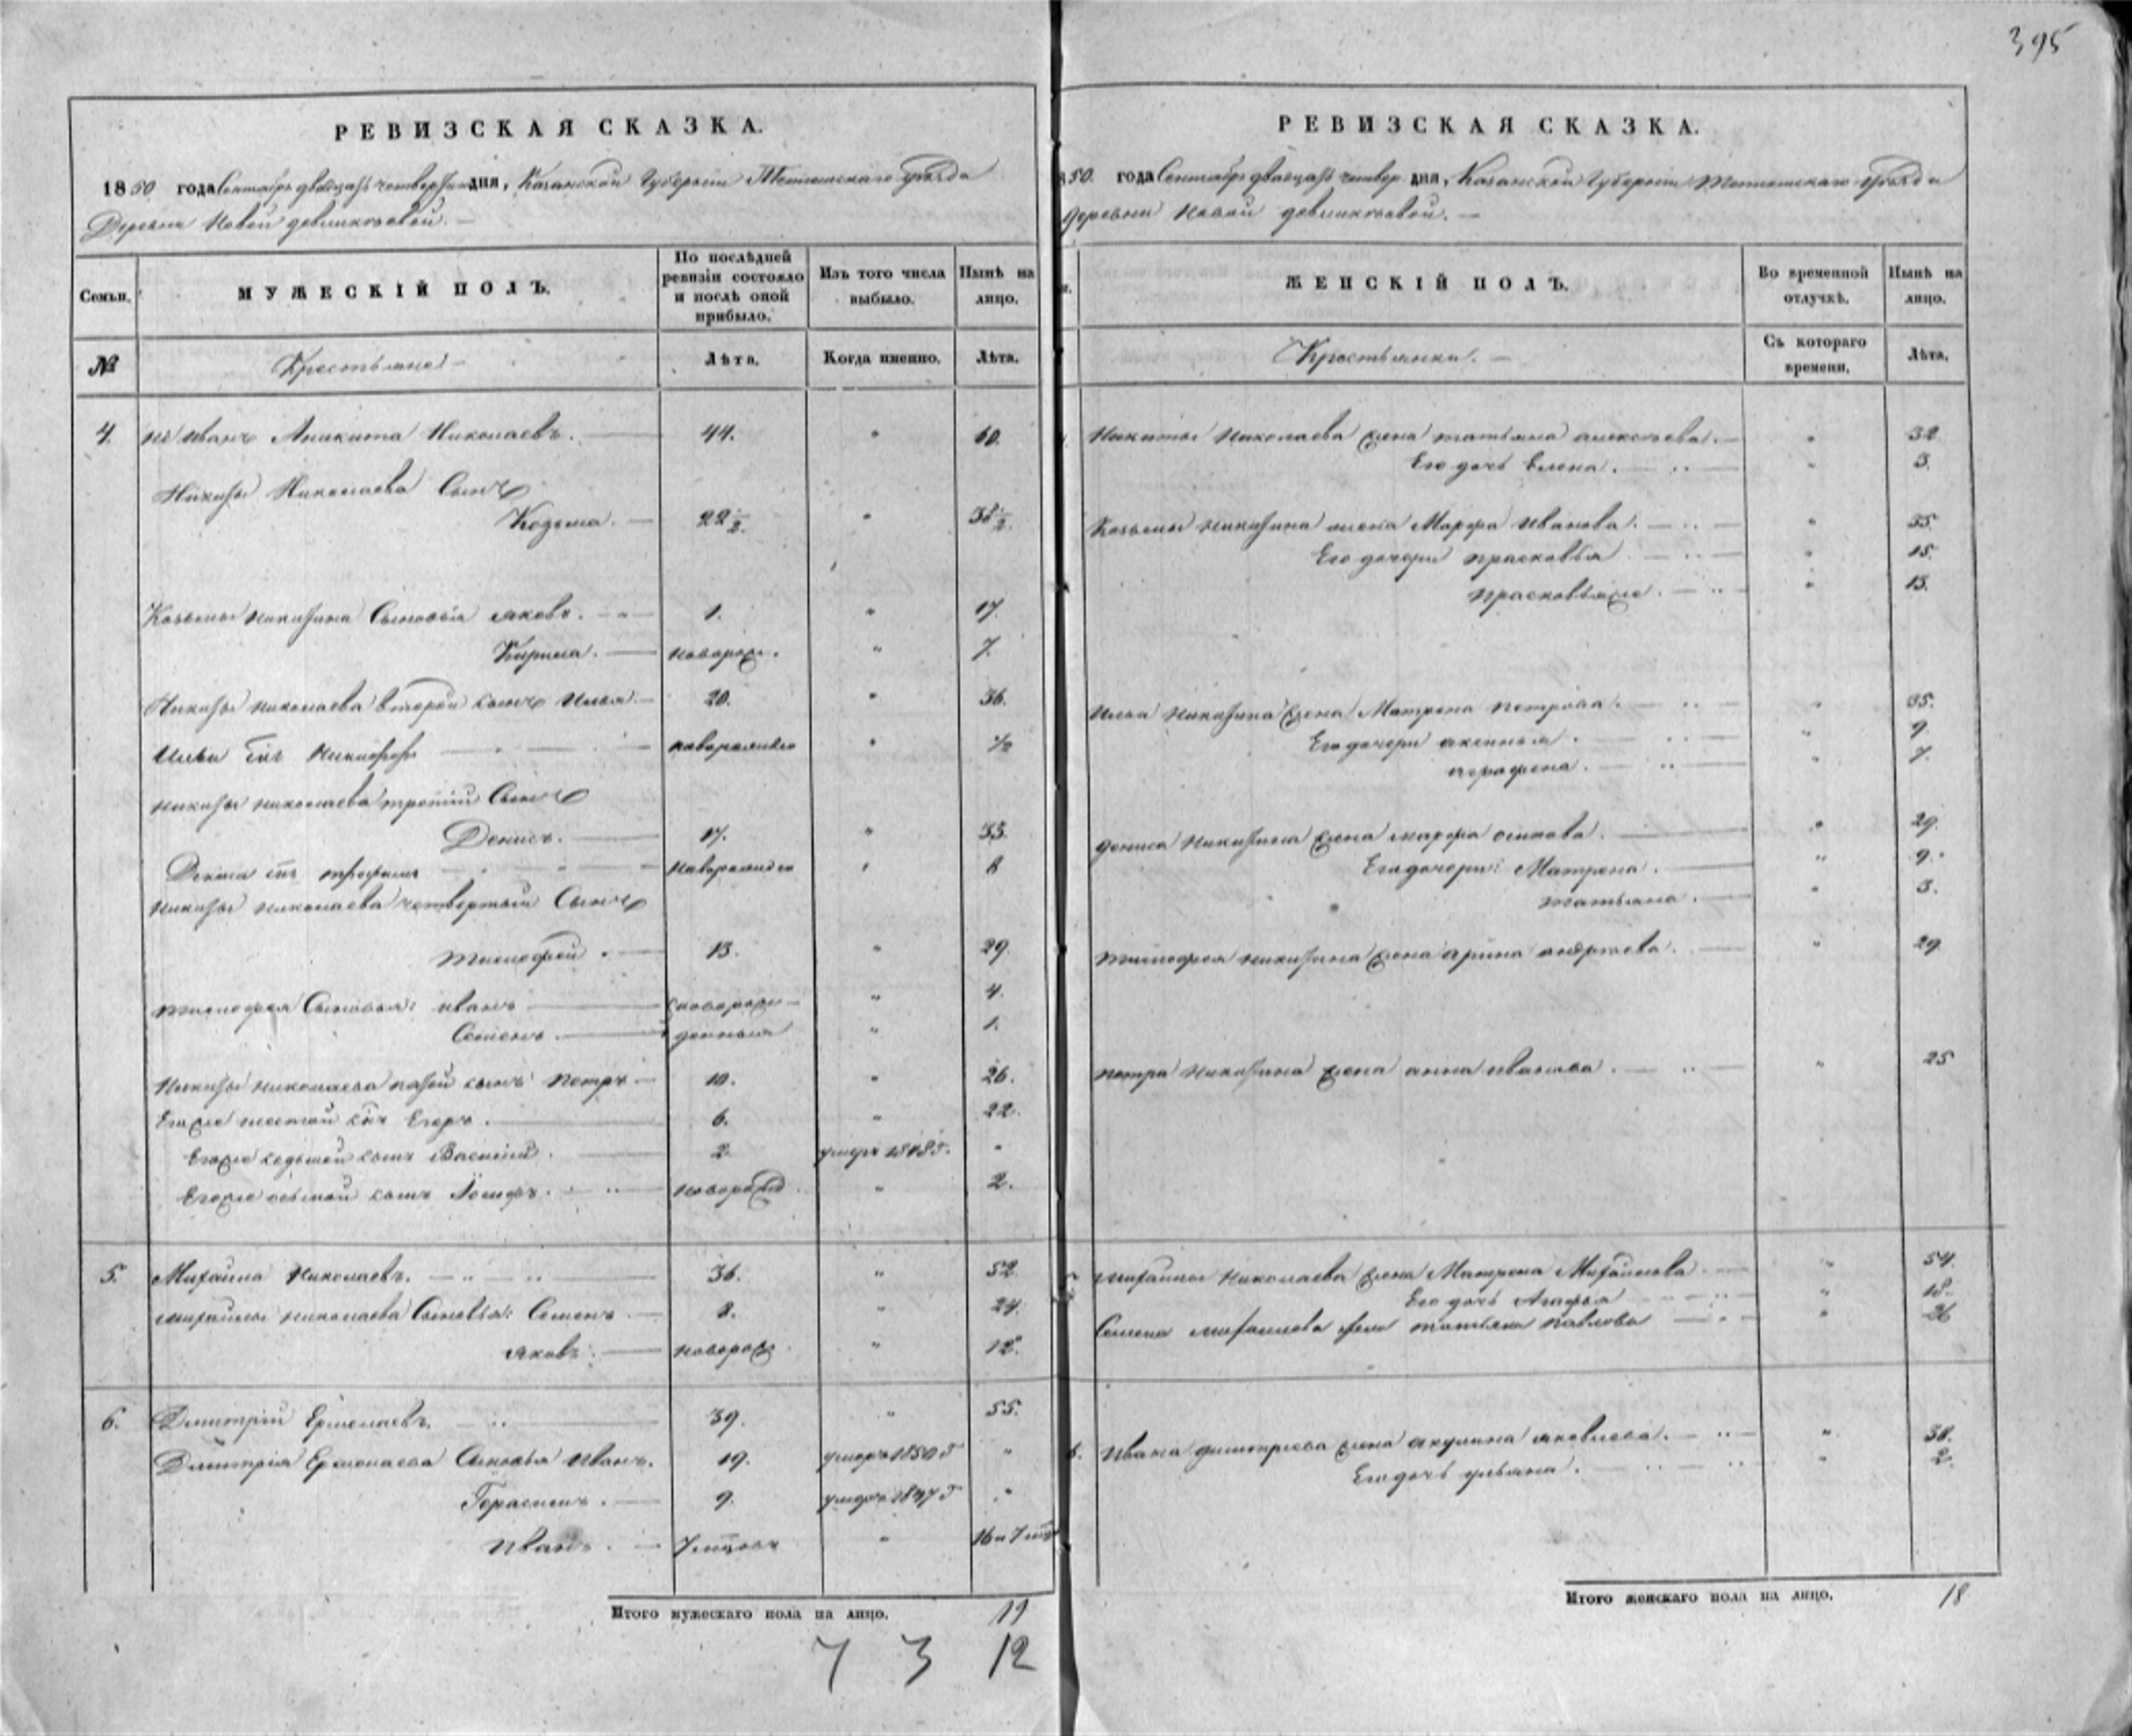 395
РЕВИЗСКАЯ СКАЗКА.
1850 года Сентября двадцать четвертого дня, Казанской Губернiи Тетюшскаго уѣзда
Деревни Новой
Семьи.
МУЖЕСКIЙ ПОЛЪ.
По послѣдней ревизiи состояло и послѣ оной прибыло.
Изъ того числа выбыло.
Нынѣ на лицо.
№
Крестьяне
Лѣта.
Когда именно.
Лѣта.
4. Иванъ Аникита Николаевъ. 44. " 60.
Никиты Николаева Сынъ
Козьма. 22½. " 38½.
Козьмы Никитина Сыновья Яковъ. 1. " 17.
Кирила. новорож. " 7.
Никиты Николаева второй сынъ Илья. 20. " 36.
Ильи сынъ Никифоръ новорожденъ " ½
Никиты Николаева третiй Сынъ
Денисъ. 17. " 33.
Дениса сынъ Трофимъ новорожденъ " 8
Никиты Николаева четвертый Сынъ
Тимофей. 13. " 29.
Тимофея Сыновья: Иванъ новорож- " 4.
Семенъ. денныя " 1.
Никиты Николаева пятой сынъ Петръ 10. " 26.
Его же шестой сынъ Егоръ. 6. " 22.
Его же седьмой сынъ Василiй. 2. умеръ "
Его же осьмой сынъ Iосифъ. новорожд. " 2.
5. Михайла Николаевъ. 36. " 52.
Михайлы Николаева Сыновья: Семенъ. 8. " 24.
Яковъ. новорож. " 12.
6. Димитрiй Ермолаевъ. 39. " 55.
Димитрiя Ермолаева Сыновья Иванъ. 19. умеръ 1850 г "
Герасимъ. 9. умеръ 1847 г "
Иванъ. 7 мцовъ " 16 и 7 мц
Итого мужескаго пола на лицо. 19
7 3 12
РЕВИЗСКАЯ СКАЗКА.
50. года Сентября двадцать четвер. дня, Казанской Губернiи Тетюшскаго уѣзда
деревни Новой
ЖЕНСКIЙ ПОЛЪ.
Во временной отлучкѣ.
Нынѣ на лицо.
Крестьянки.
Съ котораго времени.
Лѣта.
Никиты Николаева жена Татьяна Алексѣева. " 32.
Его дочь Елена. " 3.
Козьмы Никитина жена Марфа Иванова. " 35.
Его дочери Прасковья " 15.
Прасковья же. " 13.
Ильи Никитина жена Матрена Петрова. " 35.
Его дочери Аксинья. " 9.
Аграфена. " 7.
Дениса Никитина жена Марфа Осипова. " 29.
Его дочери: Матрена. " 9.
Татьяна. " 3.
Тимофея Никитина жена Арина Андреева. " 29.
Петра Никитина жена Анна Иванова. " 25
Михайлы Николаева жена Матрена Михайлова. " 54.
Его дочь Агафья " 18.
Семена Михайлова жена Татьяна Павлова " 26
6. Ивана Димитрiева жена Акулина Яковлева. " 38.
Его дочь Ульяна. " 2.
Итого женскаго пола на лицо. 18